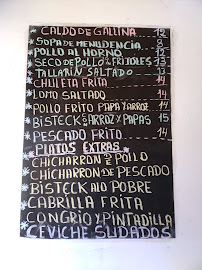 CALDO DE GALLINA 12
SOPA DE MENUDENCIA 8
POLLO AL HORNO 12
SECO DE POLLO C/ FRIJOLES 13
TALLARIN SALTADO 13
CHULETA FRITA 14
LOMO SALTADO 14
POLLO FRITO PAPA Y ARROZ 14
BISTECK C/ ARROZ Y PAPAS 15
PESCADO FRITO 14
PLATOS EXTRAS
CHICHARRON DE POLLO
CHICHARRON DE PESCADO
BISTECK A LO POBRE
CABRILLA FRITA
CONGRIO Y PINTADILLA
CEVICHE SUDADOS